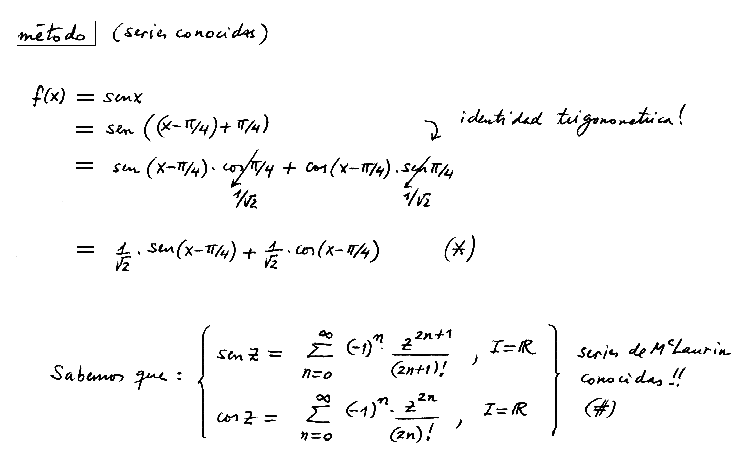 método (series conocidas)
f(x) = senx
= sen ((x-π/4)+π/4) identidad trigonometrica!
= sen (x-π/4) · cos π/4 + cos (x-π/4) · sen π/4
1/√2 1/√2
= 1/√2 · sen(x-π/4) + 1/√2 · cos(x-π/4) (*)
Sabemos que: { sen z = ∑_{n=0}^{∞} (-1)^n · z^{2n+1}/(2n+1)! , I=ℝ
cos z = ∑_{n=0}^{∞} (-1)^n · z^{2n}/(2n)! , I=ℝ }
series de McLaurin
conocidas!!
(#)